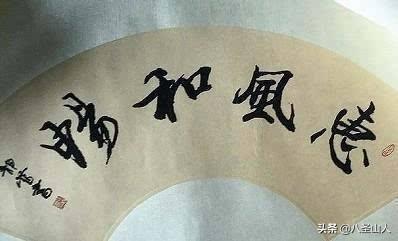 惠風和暢
頭条 @八圣山人